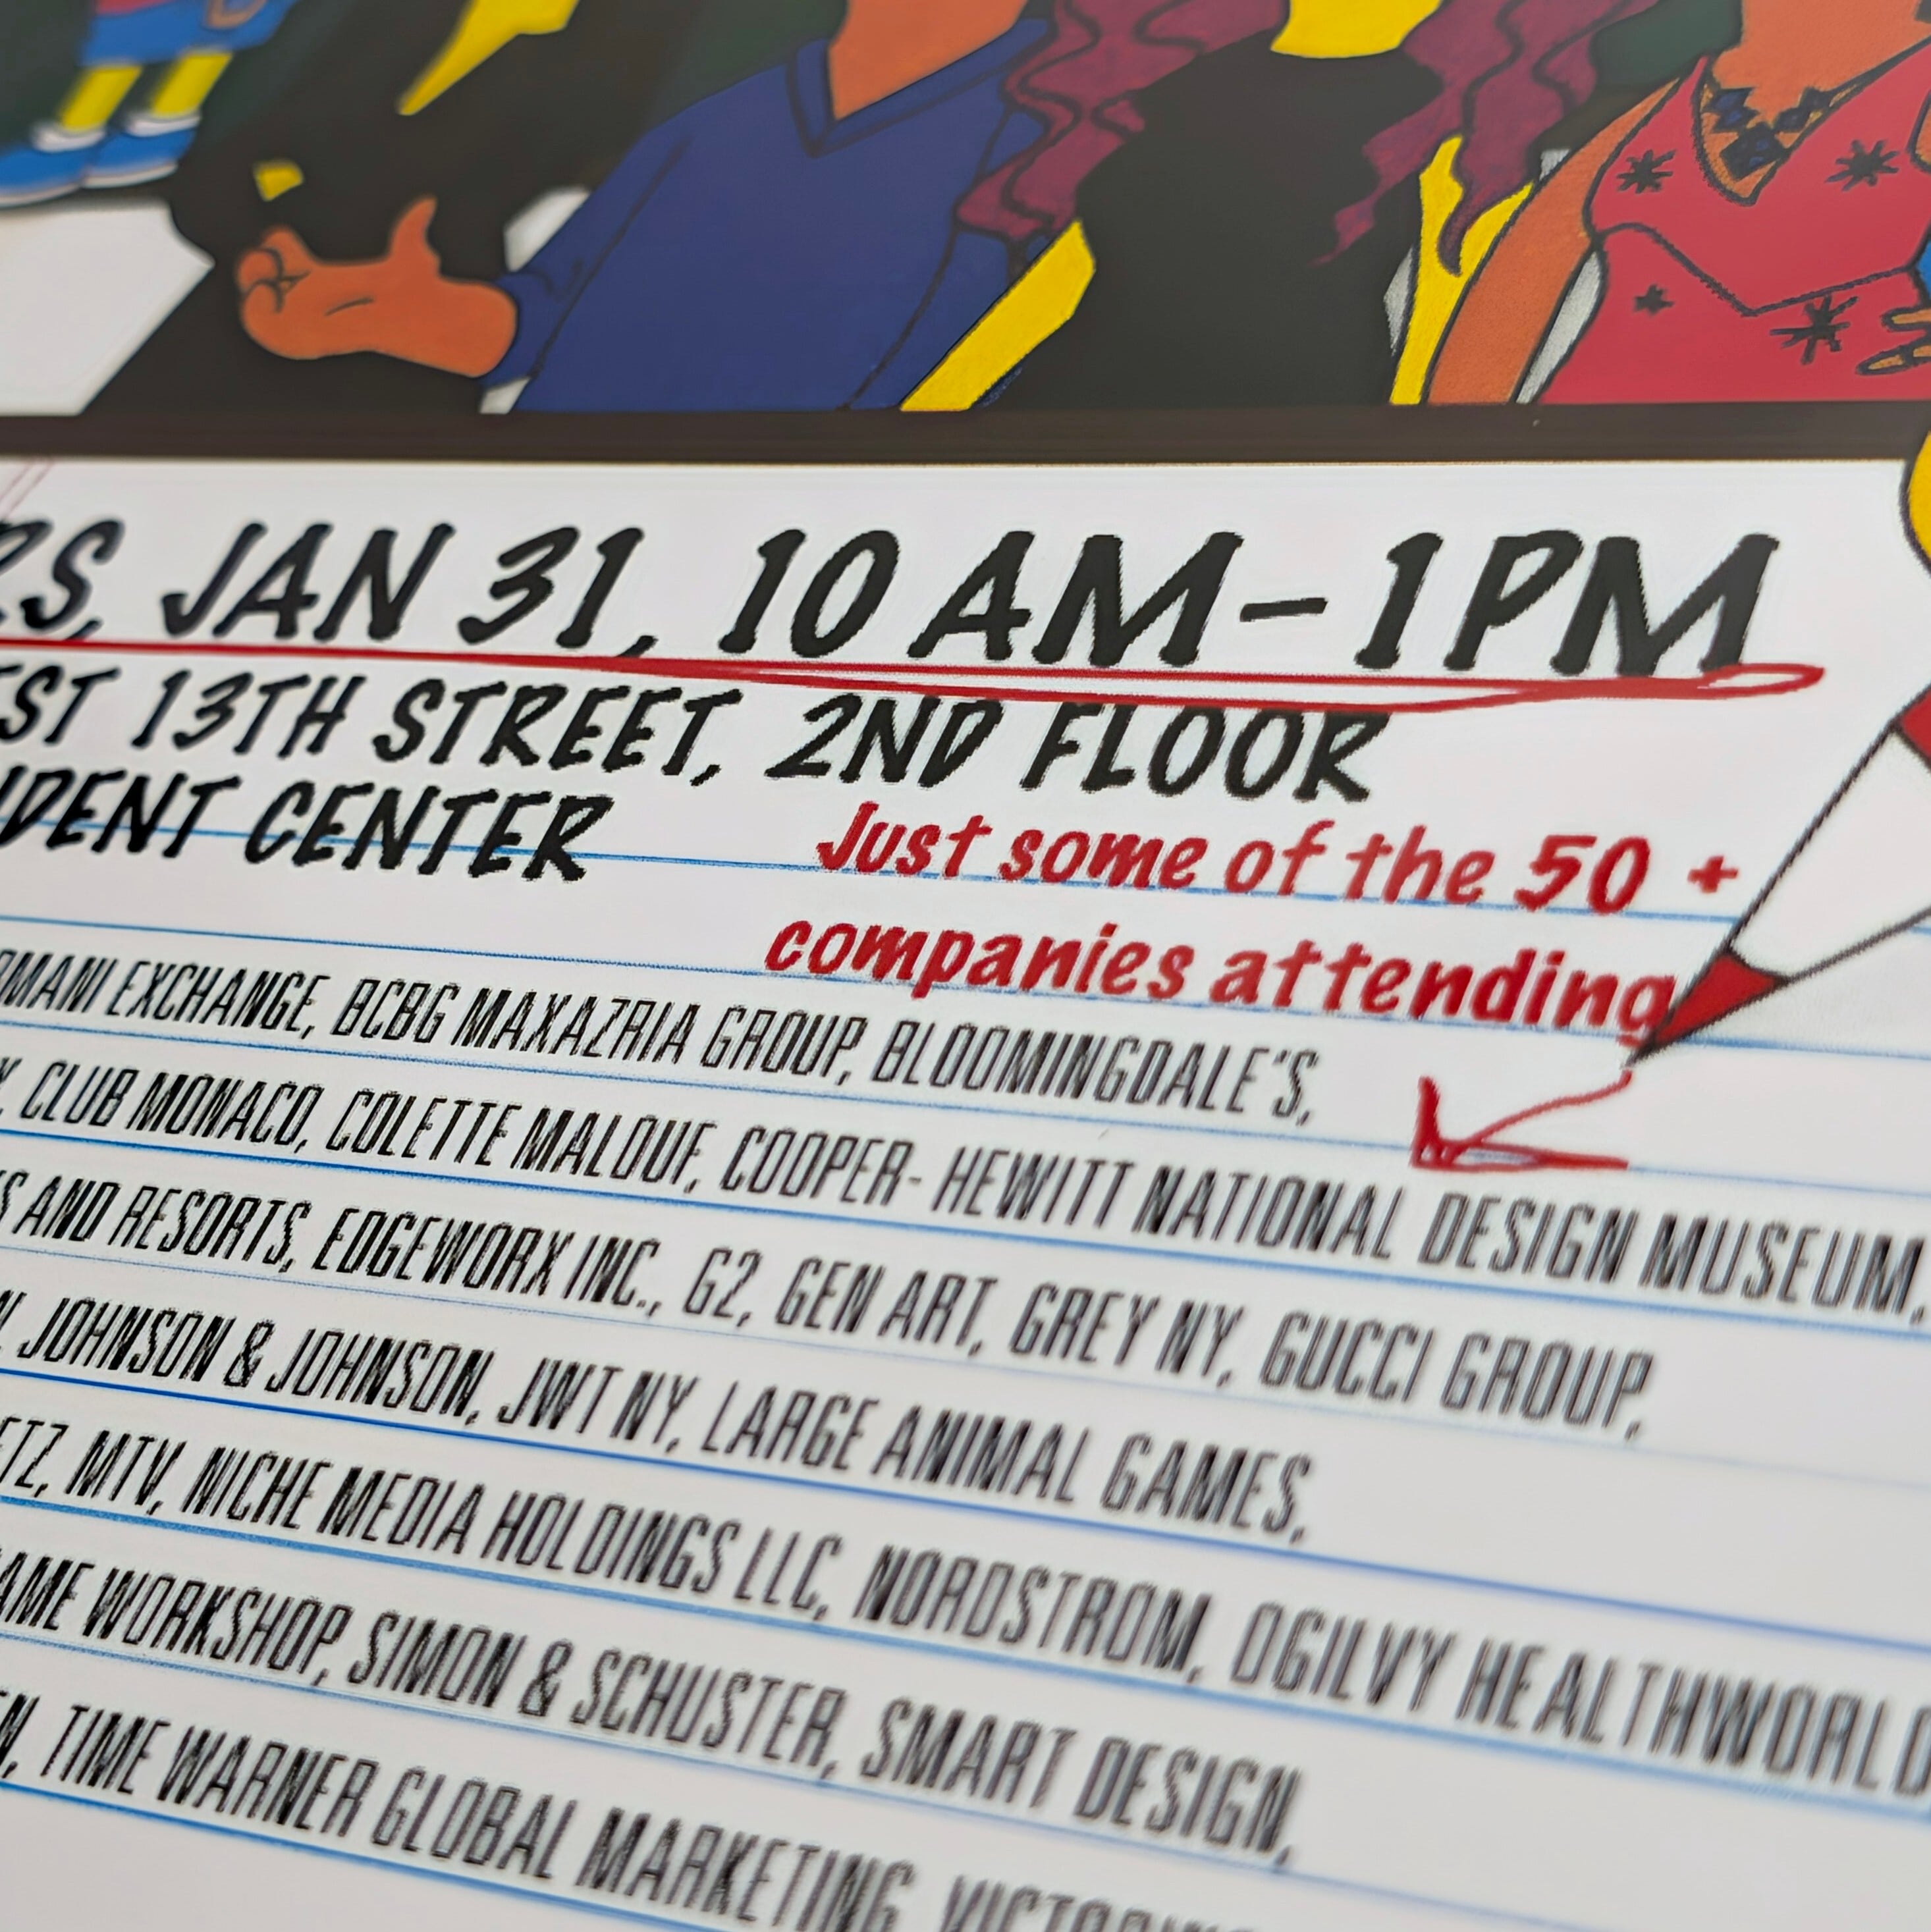 RS, JAN 31, 10 AM – 1 PM
EST 13TH STREET, 2ND FLOOR
DENT CENTER
Just some of the 50 +
companies attending
MANI EXCHANGE, BCBG MAXAZRIA GROUP, BLOOMINGDALE'S,
CLUB MONACO, COLETTE MALOUF, COOPER- HEWITT NATIONAL DESIGN MUSEUM,
S AND RESORTS, EDGEWORX INC., G2, GEN ART, GREY NY, GUCCI GROUP,
JOHNSON & JOHNSON, JWT NY, LARGE ANIMAL GAMES,
ETZ, MTV, NICHE MEDIA HOLDINGS LLC, NORDSTROM, OGILVY HEALTHWORLD
AME WORKSHOP, SIMON & SCHUSTER, SMART DESIGN,
N, TIME WARNER GLOBAL MARKETING,